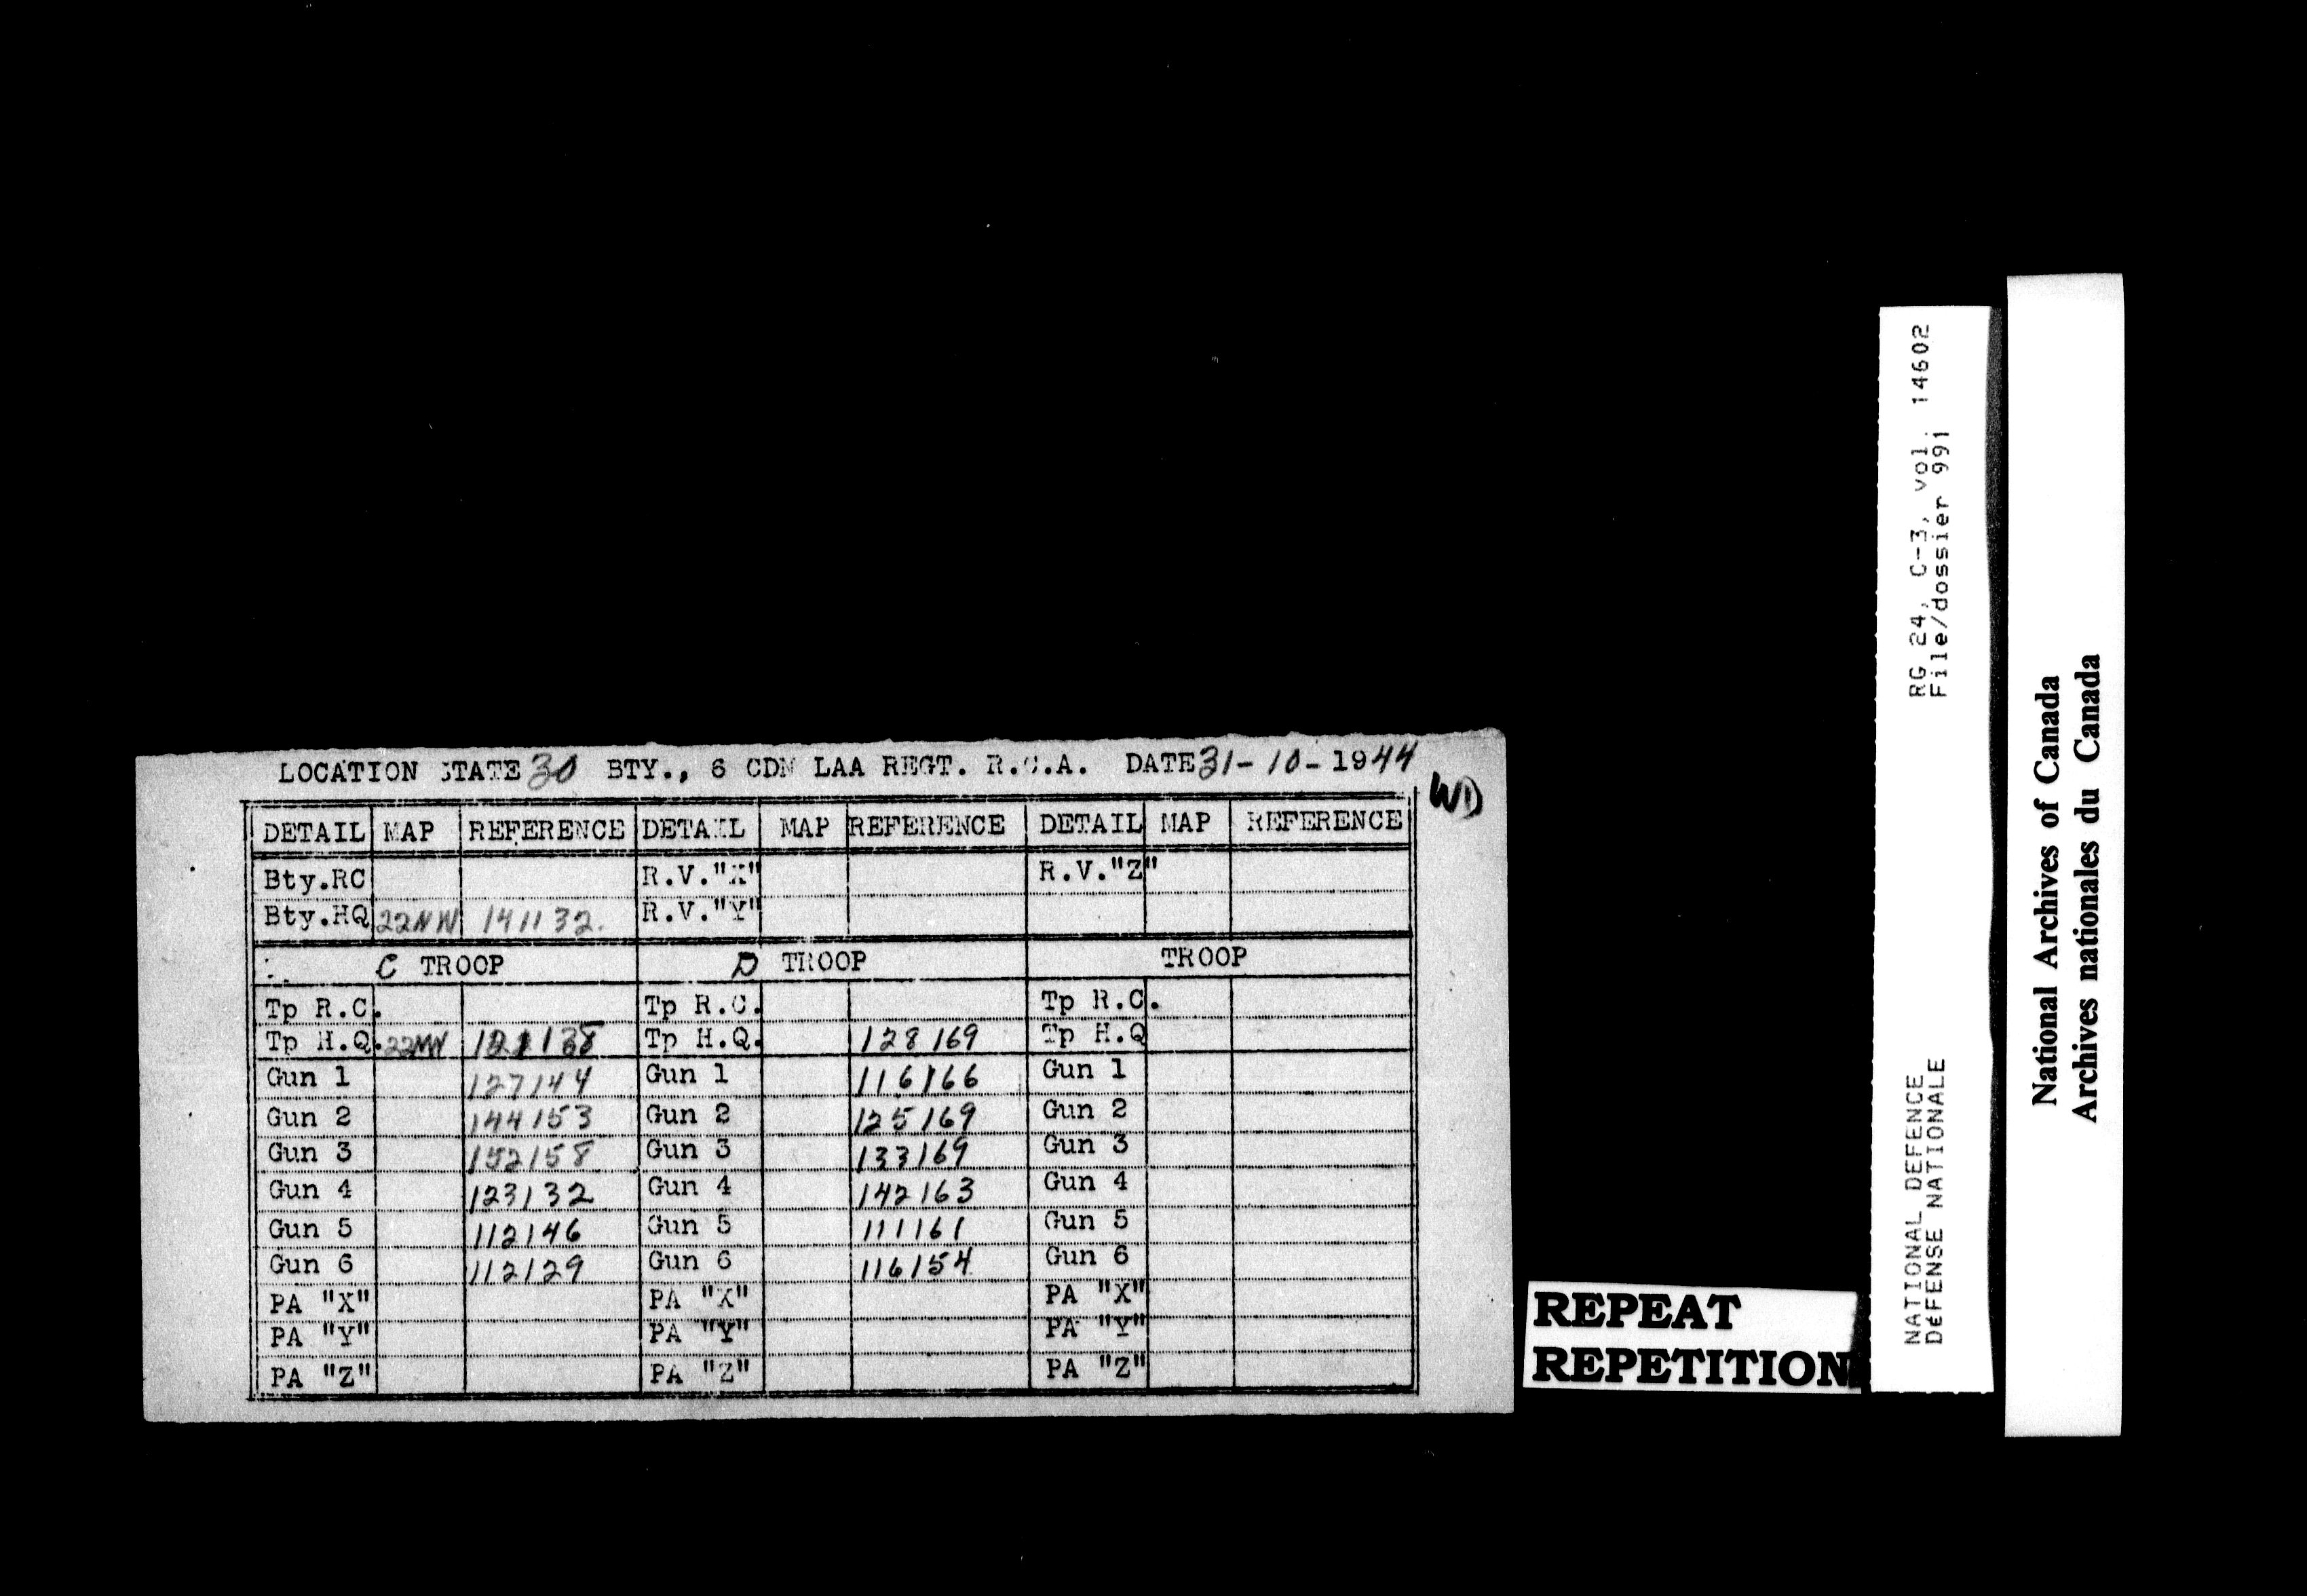 LOCATION STATE 30 BTY., 6 CDN LAA REGT. R.C.A. DATE 31-10-1944
WD
DETAIL MAP REFERENCE DETAIL MAP REFERENCE DETAIL MAP REFERENCE
Bty.RC R.V."X" R.V."Z"
Bty.HQ 22NW 141132. R.V."Y"
C TROOP D TROOP TROOP
Tp R.C. Tp R.C. Tp R.C.
Tp H.Q. 22NW Tp H.Q. 128169 Tp H.Q
Gun 1 127144 Gun 1 116166 Gun 1
Gun 2 144153 Gun 2 125169 Gun 2
Gun 3 152158 Gun 3 133169 Gun 3
Gun 4 123132 Gun 4 142163 Gun 4
Gun 5 112146 Gun 5 111161 Gun 5
Gun 6 112129 Gun 6 116154 Gun 6
PA "X" PA "X" PA "X"
PA "Y" PA "Y" PA "Y"
PA "Z" PA "Z" PA "Z"
REPEAT
REPETITION
NATIONAL DEFENCE RG 24, C-3, vol. 14602
DÉFENSE NATIONALE File/dossier 991
National Archives of Canada
Archives nationales du Canada